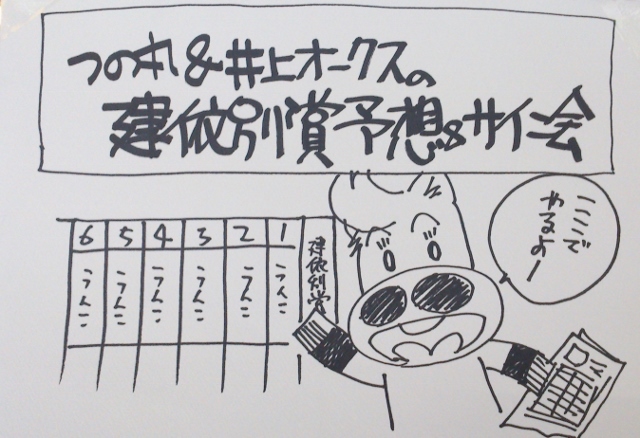 つの丸&井上オークスの
建依別賞予想&サイン会
ここで
やるよー
6 5 4 3 2 1 建依別賞
うんこ うんこ うんこ うんこ うんこ うんこ